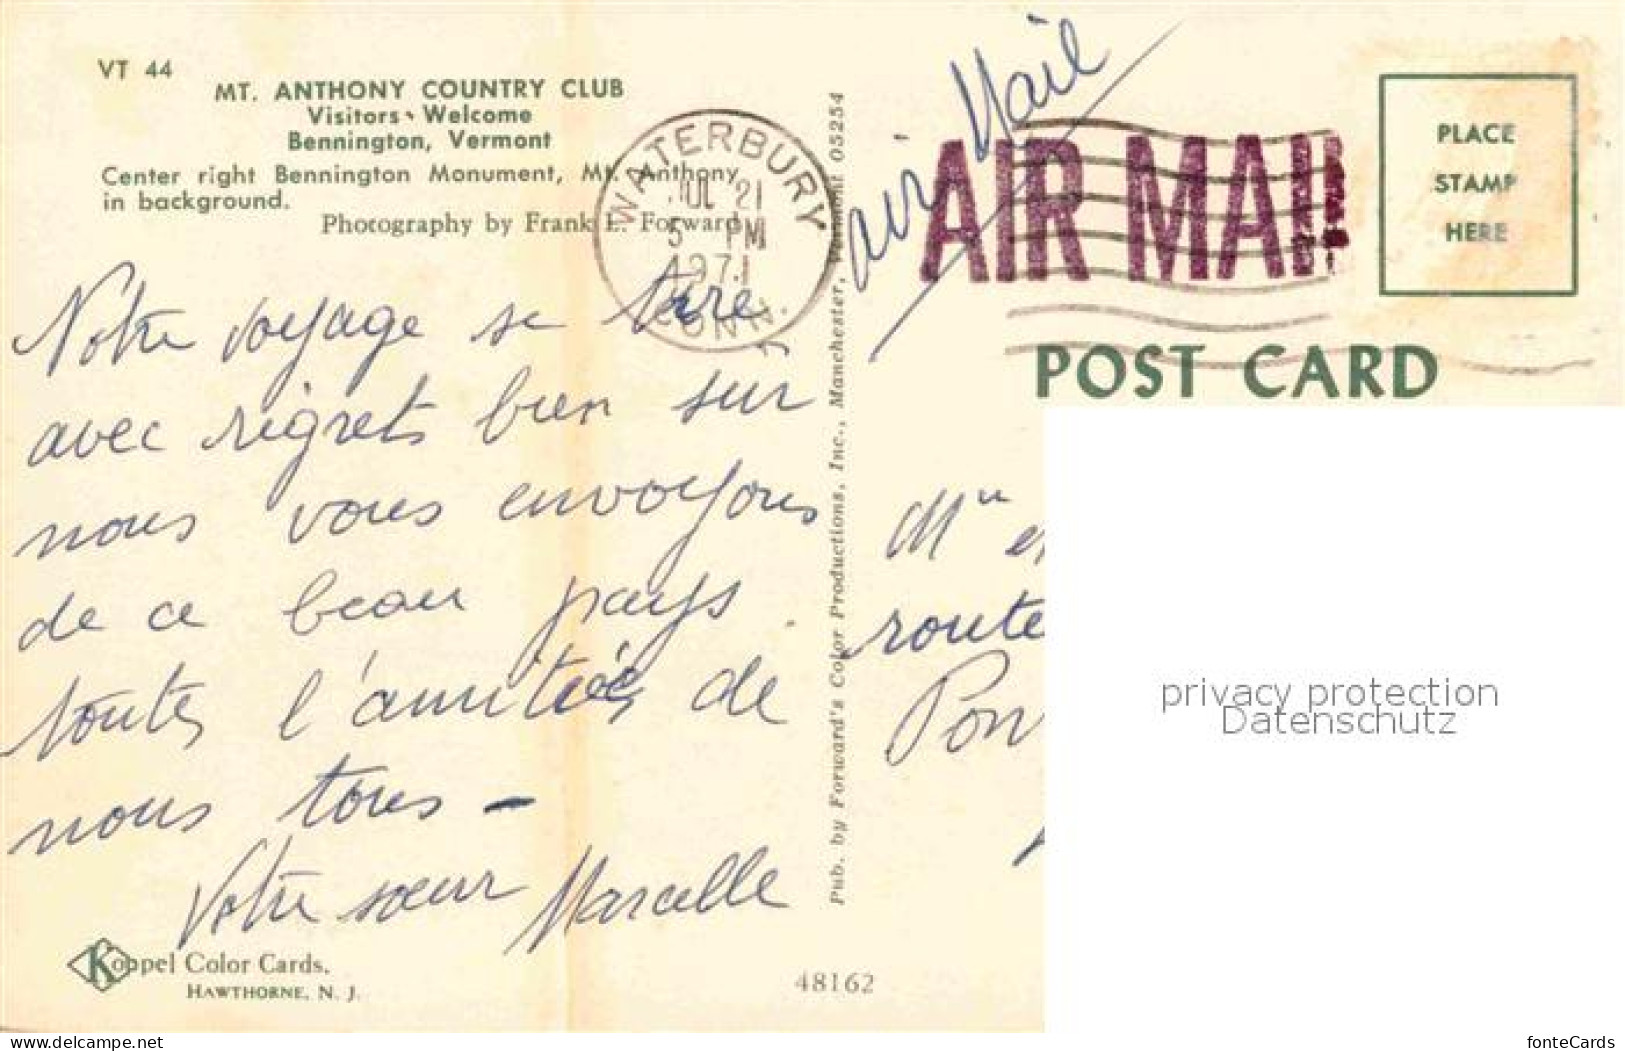 VT 44
MT. ANTHONY COUNTRY CLUB
Visitors Welcome
Bennington, Vermont
Center right Bennington Monument, Mt. Anthony
in background.
Photography by Frank L. Forward
WATERBURY
JUL 21
5 PM
1971
CONN.
Notre voyage se
avec regrets bien sur
nous vous envoyons
de ce beau pays.
toutes l'amitiés de
nous tous -
Votre sœur Marcelle
Koppel Color Cards.
HAWTHORNE, N. J.
48162
Pub. by Forward's Color Productions, Inc., Manchester, Vermont 05254
air Mail
AIR MAIL
PLACE
STAMP
HERE
POST CARD
route
Pon
privacy protection
Datenschutz
www.delcampe.net
fonteCards